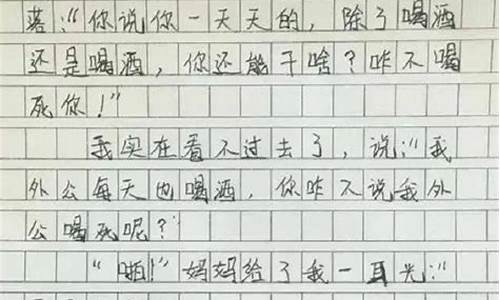 落:“你说你一天天的,除了喝酒
还是喝酒,你还能干啥?咋不喝
死你!”
我实在看不过去了,说:“我
外公每天也喝酒,你咋不说我外
公喝死呢?”
“啪!”妈妈给了我一耳光:“